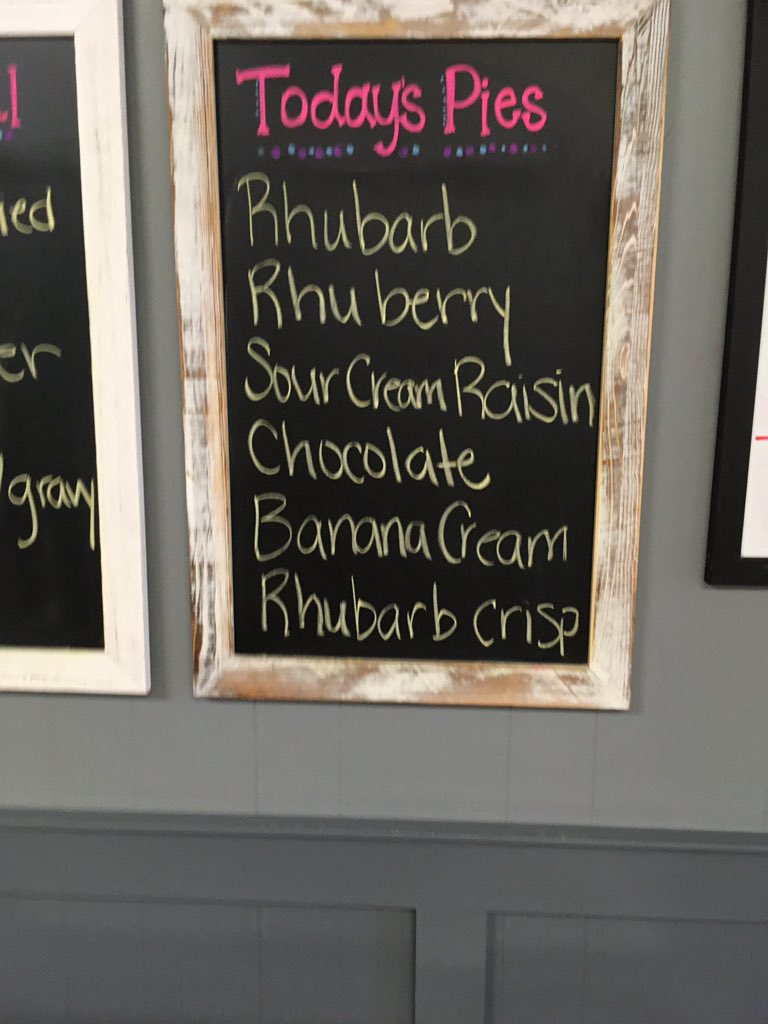 Today's Pies
Rhubarb
Rhuberry
Sour Cream Raisin
Chocolate
Banana Cream
Rhubarb crisp
gravy